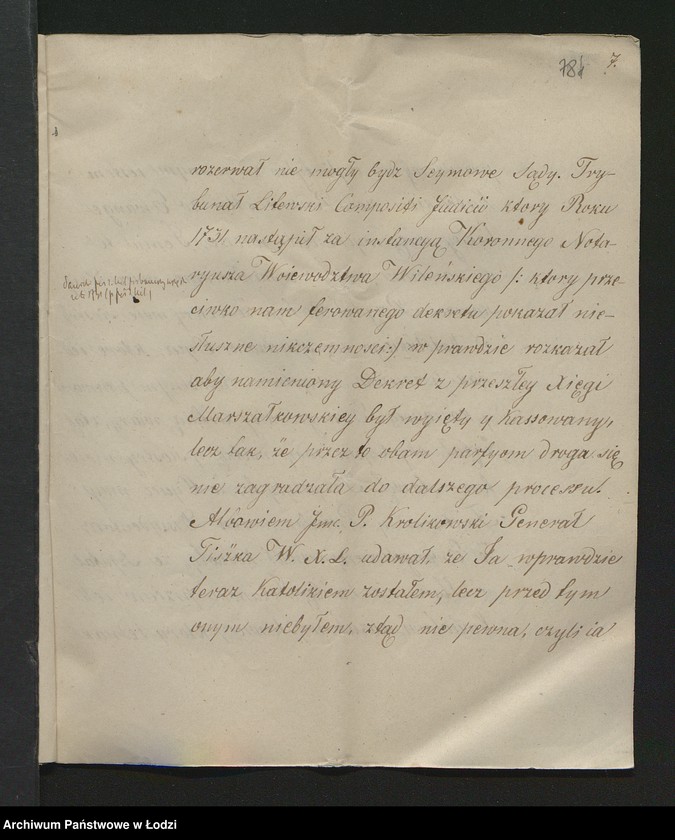 784 7.
rozerwał nie mogły bydz Seymowe Sądy. Try-
bunał Litewski Compositi Judicii ktory Roku
1731 nastąpił za instancyą Koronnego Nota-
ryusza Woiewodztwa Wileńskiego /: ktory prze-
ciwko nam ferowanego dekretu pokazał nie-
słuszne nikczemnosci :/ w prawdzie rozkazał
aby namieniony Dekret z przeszłey Xięgi
Marszałkowskiey był wyięty y kassowany,
lecz tak, że przez to obam partyom droga się
nie zagradzała do dalszego processu.
Albowiem Jmc. P. Krolikowski Generał
Tiszka W. X. L. udawał, że Ja wprawdzie
teraz Katolikiem zostałem, lecz przed tym
onym niebyłem, ztąd nie pewna, czyli ia
Archiwum Państwowe w Łodzi